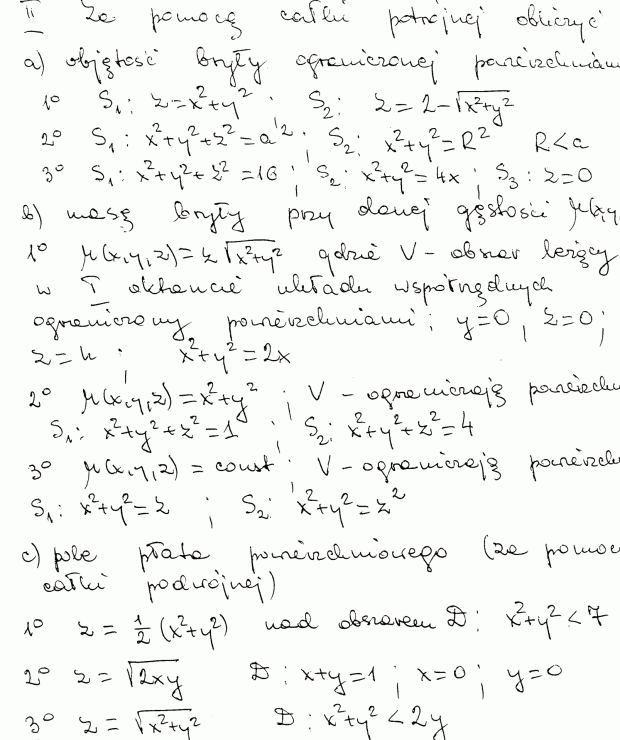 II Za pomocą całki potrójnej obliczyć
a) objętość bryły ograniczonej powierzchniam
1° S₁: z=x²+y² ; S₂: z=2-√(x²+y²)
2° S₁: x²+y²+z²=a² ; S₂: x²+y²=R² R<a
3° S₁: x²+y²+z²=16 ; S₂: x²+y²=4x ; S₃: z=0
b) masę bryły przy danej gęstości μ(x,y,
1° μ(x,y,z)=z√(x²+y²) gdzie V - obszar leżący
w I oktancie układu współrzędnych
ograniczony powierzchniami: y=0, z=0;
z=h ; x²+y²=2x
2° μ(x,y,z)=x²+y² ; V - ograniczają powierzch
S₁: x²+y²+z²=1 ; S₂: x²+y²+z²=4
3° μ(x,y,z)=const ; V - ograniczają powierzch
S₁: x²+y²=z ; S₂: x²+y²=z²
c) pole płata powierzchniowego (za pomoc
całki podwójnej)
1° z=½(x²+y²) nad obszarem D: x²+y²<7
2° z=√(2xy) D: x+y=1 ; x=0 ; y=0
3° z=√(x²+y²) D: x²+y²<2y